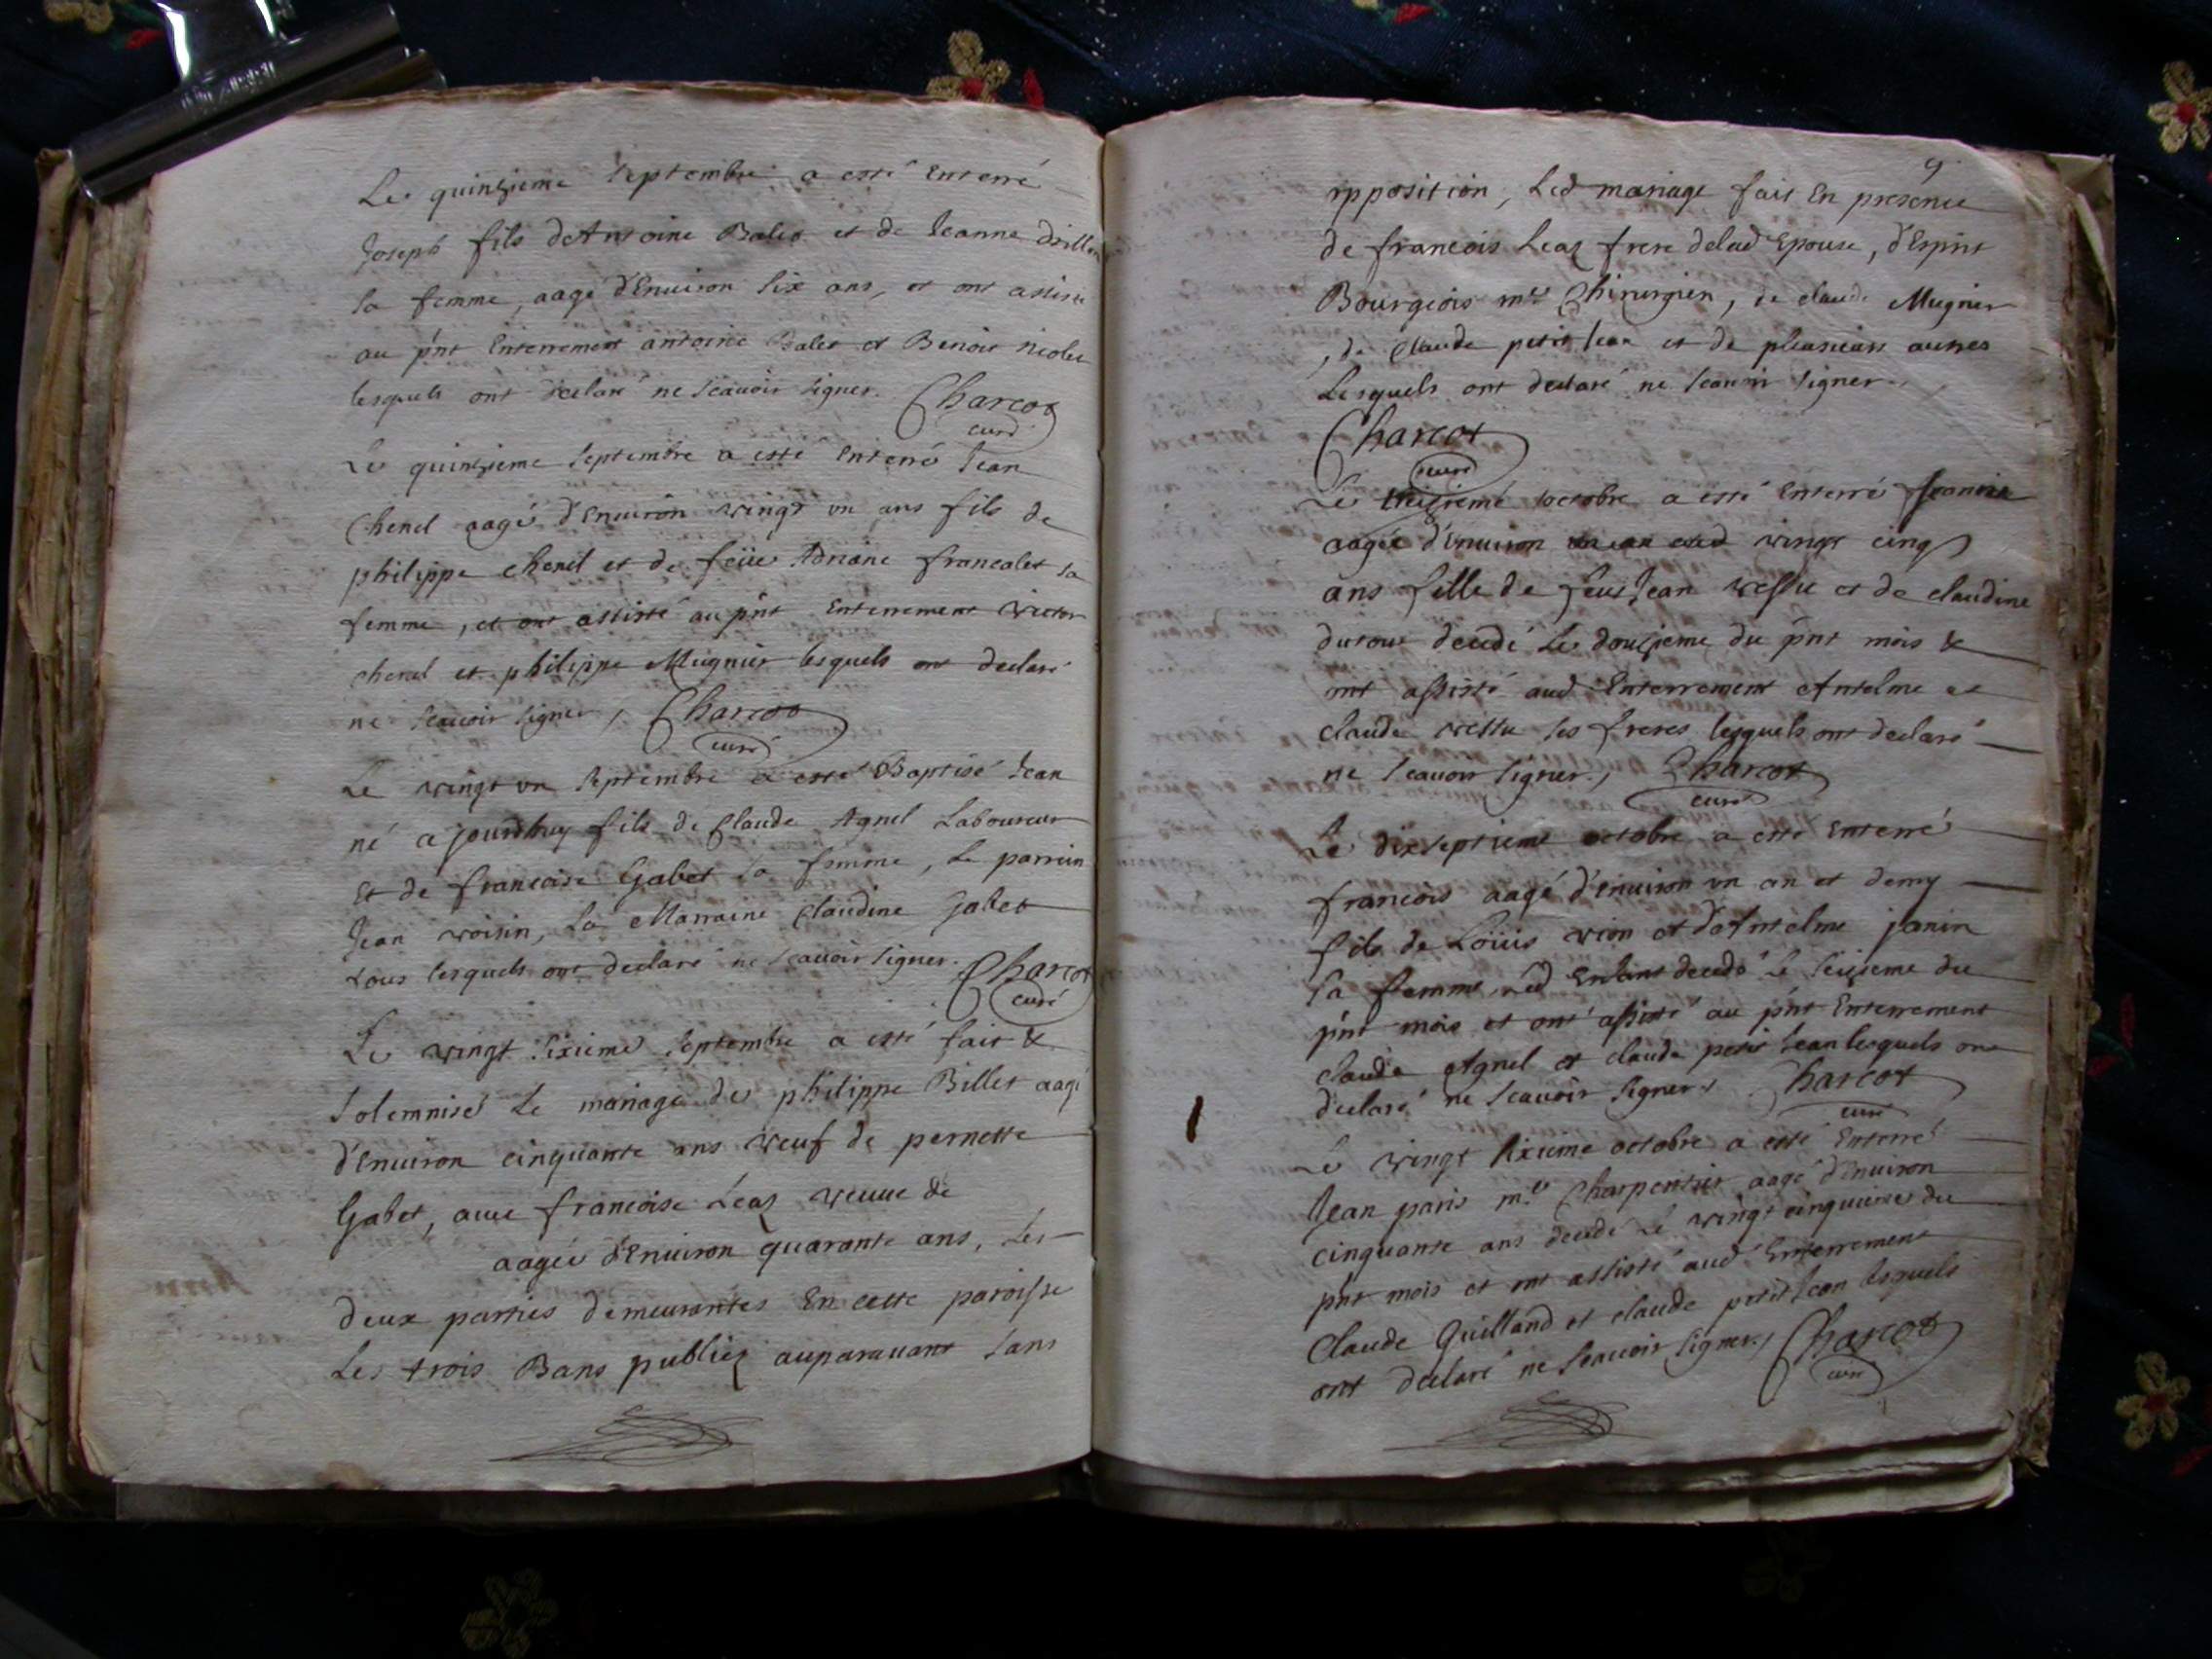 Le quinzieme septembre a esté Enterré
Joseph fils dAntoine Balet et de Jeanne
sa femme, aagé d'Enuiron six ans, et ont assisté
au pnt Enterrement antoine Balet et Benoit nicolet
lesquels ont declaré ne scauoir signer. Charcot
curé
Le quinzieme septembre a esté Enterré Jean
Chenel aagé d'Enuiron vingt vn ans fils de
philippe chenel et de feüe Adriane francalet sa
femme, et ont assisté au pnt Enterrement victor
chenel et philippe Mugnier lesquels ont declaré
ne scauoir signer, Charcot
curé
Le vingt vn septembre a esté Baptisé Jean
né a jourdhuy fils de Claude Agnel Laboureur
Et de francoise Gabet sa femme, Le parrin
Jean voisin, La Marraine Claudine Gabet
tous lesquels ont declaré ne scauoir signer. Charcot
curé
Le vingt sixieme septembre a esté fait &
solemnisé Le mariage de philippe Billet aagé
d'Enuiron cinquante ans veuf de pernette
Gabet, auec francoise Leaz veuue de
aagée d'Enuiron quarante ans, Les
deux parties demeurantes En cette paroisse
Les trois Bans publiez auparauant sans
9
opposition, Led mariage fait En presence
de francois Leaz frere delad Epouse, d'Esprit
Bourgeois mre Chirurgien, de claude Mugnier
, de Claude petit Jean et de plusieurs autres
Lesquels ont declaré ne scauoir signer.
Charcot
curé
Le treizieme octobre a esté Enterré Jeanne
aagée d'Enuiron vingt cinq
ans fille de feu Jean vessu et de claudine
dutour decedé Le douzieme du pnt mois &
ont assisté aud Enterrement Antelme et
claude vessu ses freres lesquels ont declaré
ne scauoir signer, Charcot
curé
Le dixseptieme octobre a esté Enterré
francois aagé d'Enuiron vn an et demy
fils de Loüis vion et dAntelme janin
sa femme, Led Enfant decedé Le seizieme du
pnt mois et ont assisté au pnt Enterrement
claude Agnel et claude petit Jean lesquels ont
declaré ne scauoir signer, Charcot
curé
Le vingt sixieme octobre a esté Enterré
Jean paris me Charpentier aagé d'Enuiron
cinquante ans decedé Le vingt cinquieme du
pnt mois et ont assisté aud Enterrement
Claude Guilland et claude petit Jean lesquels
ont declaré ne scauoir signer, Charcot
curé